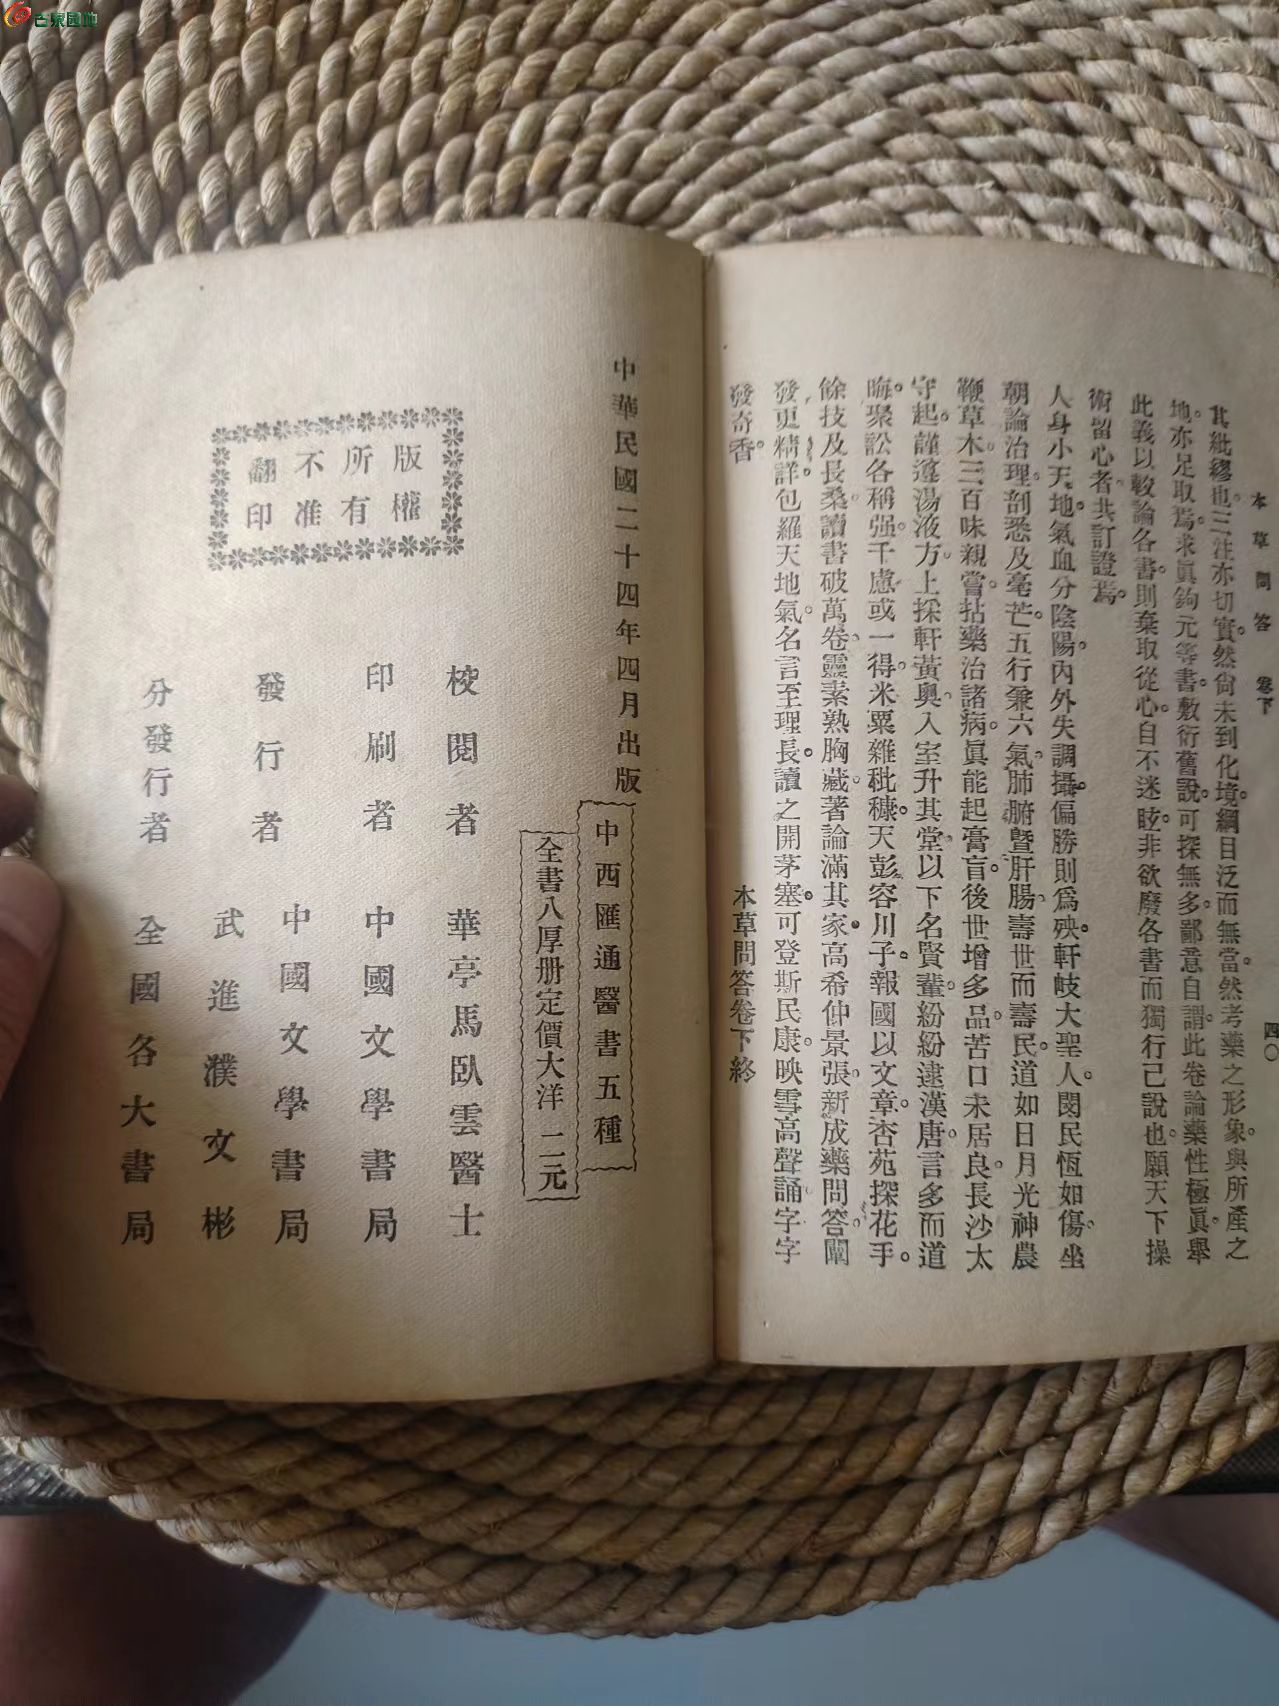 本草問答 卷下 四〇
其紕繆也三注亦切實。然尙未到化境。綱目泛而無當。然考藥之形象。與所產之
地。亦足取焉。求眞鉤元等書。敷衍舊說。可探無多。鄙意自謂。此卷論藥性極眞。舉
此義以較論各書。則棄取從心。自不迷眩。非欲廢各書而獨行己說也。願天下操
術留心者。共訂證焉。
人身小天地。氣血分陰陽。內外失調攝。偏勝則爲殃。軒岐大聖人。閔民恆如傷。坐
朝論治理。剖悉及毫芒。五行兼六氣。肺腑曁肝腸。壽世而壽民。道如日月光。神農
鞭草木。三百味親嘗。拈藥治諸病。眞能起膏肓。後世增多品。苦口未居良。長沙太
守起。謹遵湯液方。上採軒黃奧。入室升其堂。以下名賢輩。紛紛逮漢唐。言多而道
晦。聚訟各稱强。千慮或一得。米粟雜秕穅。天彭容川子。報國以文章。杏苑探花手。
餘技及長桑。讀書破萬卷。靈素熟胸藏。著論滿其家。高希仲景張。新成藥問答。闡
發更精詳。包羅天地氣。名言至理長。讀之開茅塞。可登斯民康。映雪高聲誦。字字
發奇香。
本草問答卷下終
中華民國二十四年四月出版
中西匯通醫書五種
全書八厚册定價大洋 二元
版權
所有
不准
翻印
校閱者 華亭馬臥雲醫士
印刷者 中國文學書局
發行者 中國文學書局
武進濮文彬
分發行者 全國各大書局
古泉園地